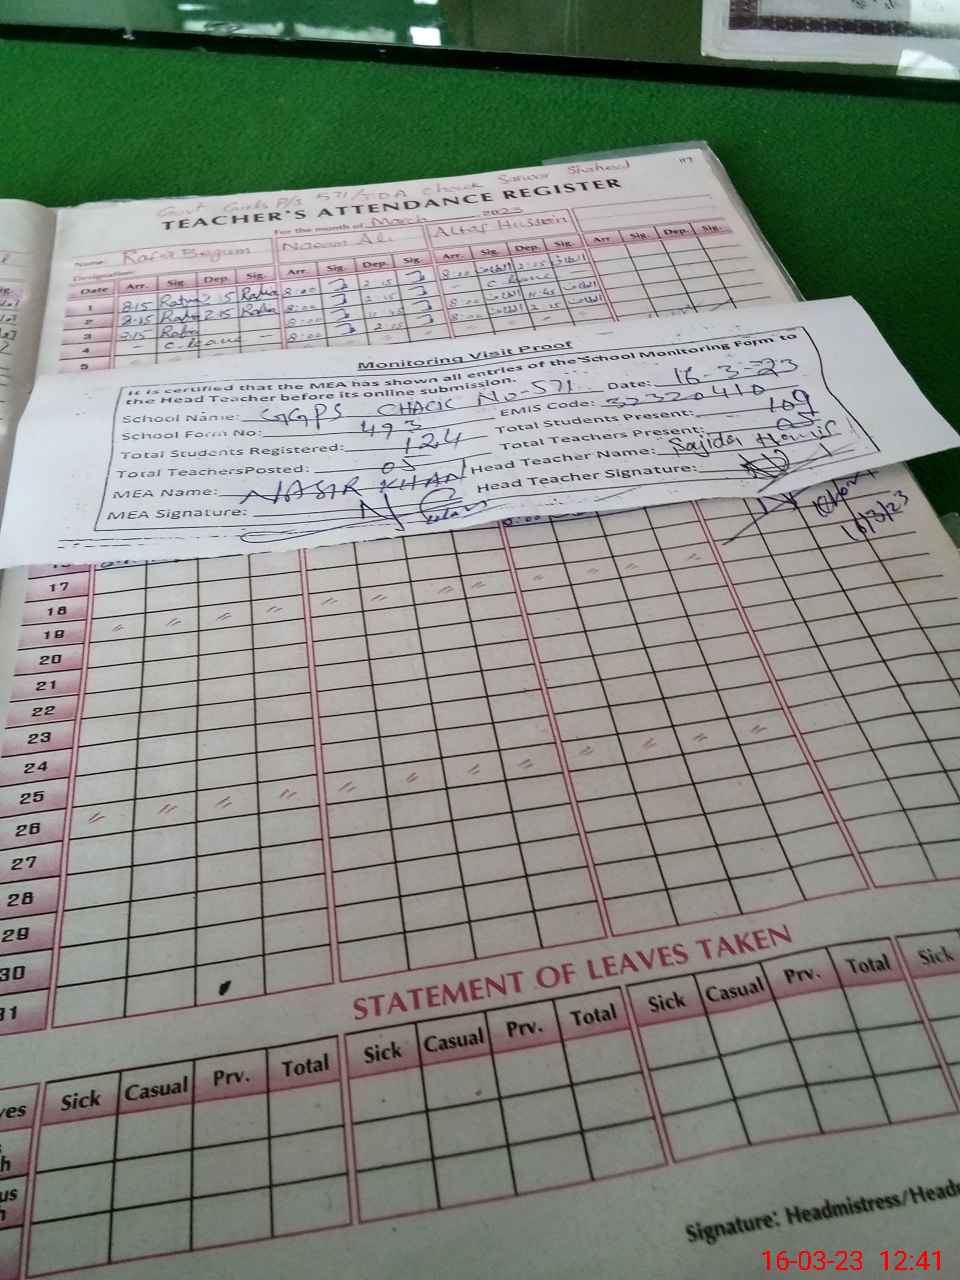 117
Govt Girls P/S 571/TDA Chowk Sarwar Shaheed
TEACHER'S ATTENDANCE REGISTER
For the month of March 2023
Name Rafia Begum Naeem Ali Altaf Hussain
Designation
Date Arr. Sig. Dep. Sig. Arr. Sig. Dep. Sig. Arr. Sig. Dep. Sig. Arr Sig. Dep. Sig.
1 8:15 2 15 8:00 2 15 8:00 2:15
2 8:15 2 15 8:00 2:15 - C. leave -
3 8:00 11:45 8:00 11:45
4 - C. leave - 8:00 2:15 8:00 2:15
5
Monitoring Visit Proof
It is certified that the MEA has shown all entries of the School Monitoring Form to
the Head Teacher before its online submission.
School Name: GGPS CHACK No-571 Date: 16-3-23
School Form No: 493 EMIS Code: 32320410
Total Students Registered: 124 Total Students Present: 109
Total TeachersPosted: 05 Total Teachers Present: 05
MEA Name: NASIR KHAN Head Teacher Name: Sajida
MEA Signature: Head Teacher Signature:
16/3/23
16
17
18
19
20
21
22
23
24
25
26
27
28
29
30
31
STATEMENT OF LEAVES TAKEN
Sick Casual Prv. Total Sick Casual Prv. Total Sick Casual Prv. Total Sick
Signature: Headmistress/Head
16-03-23 12:41